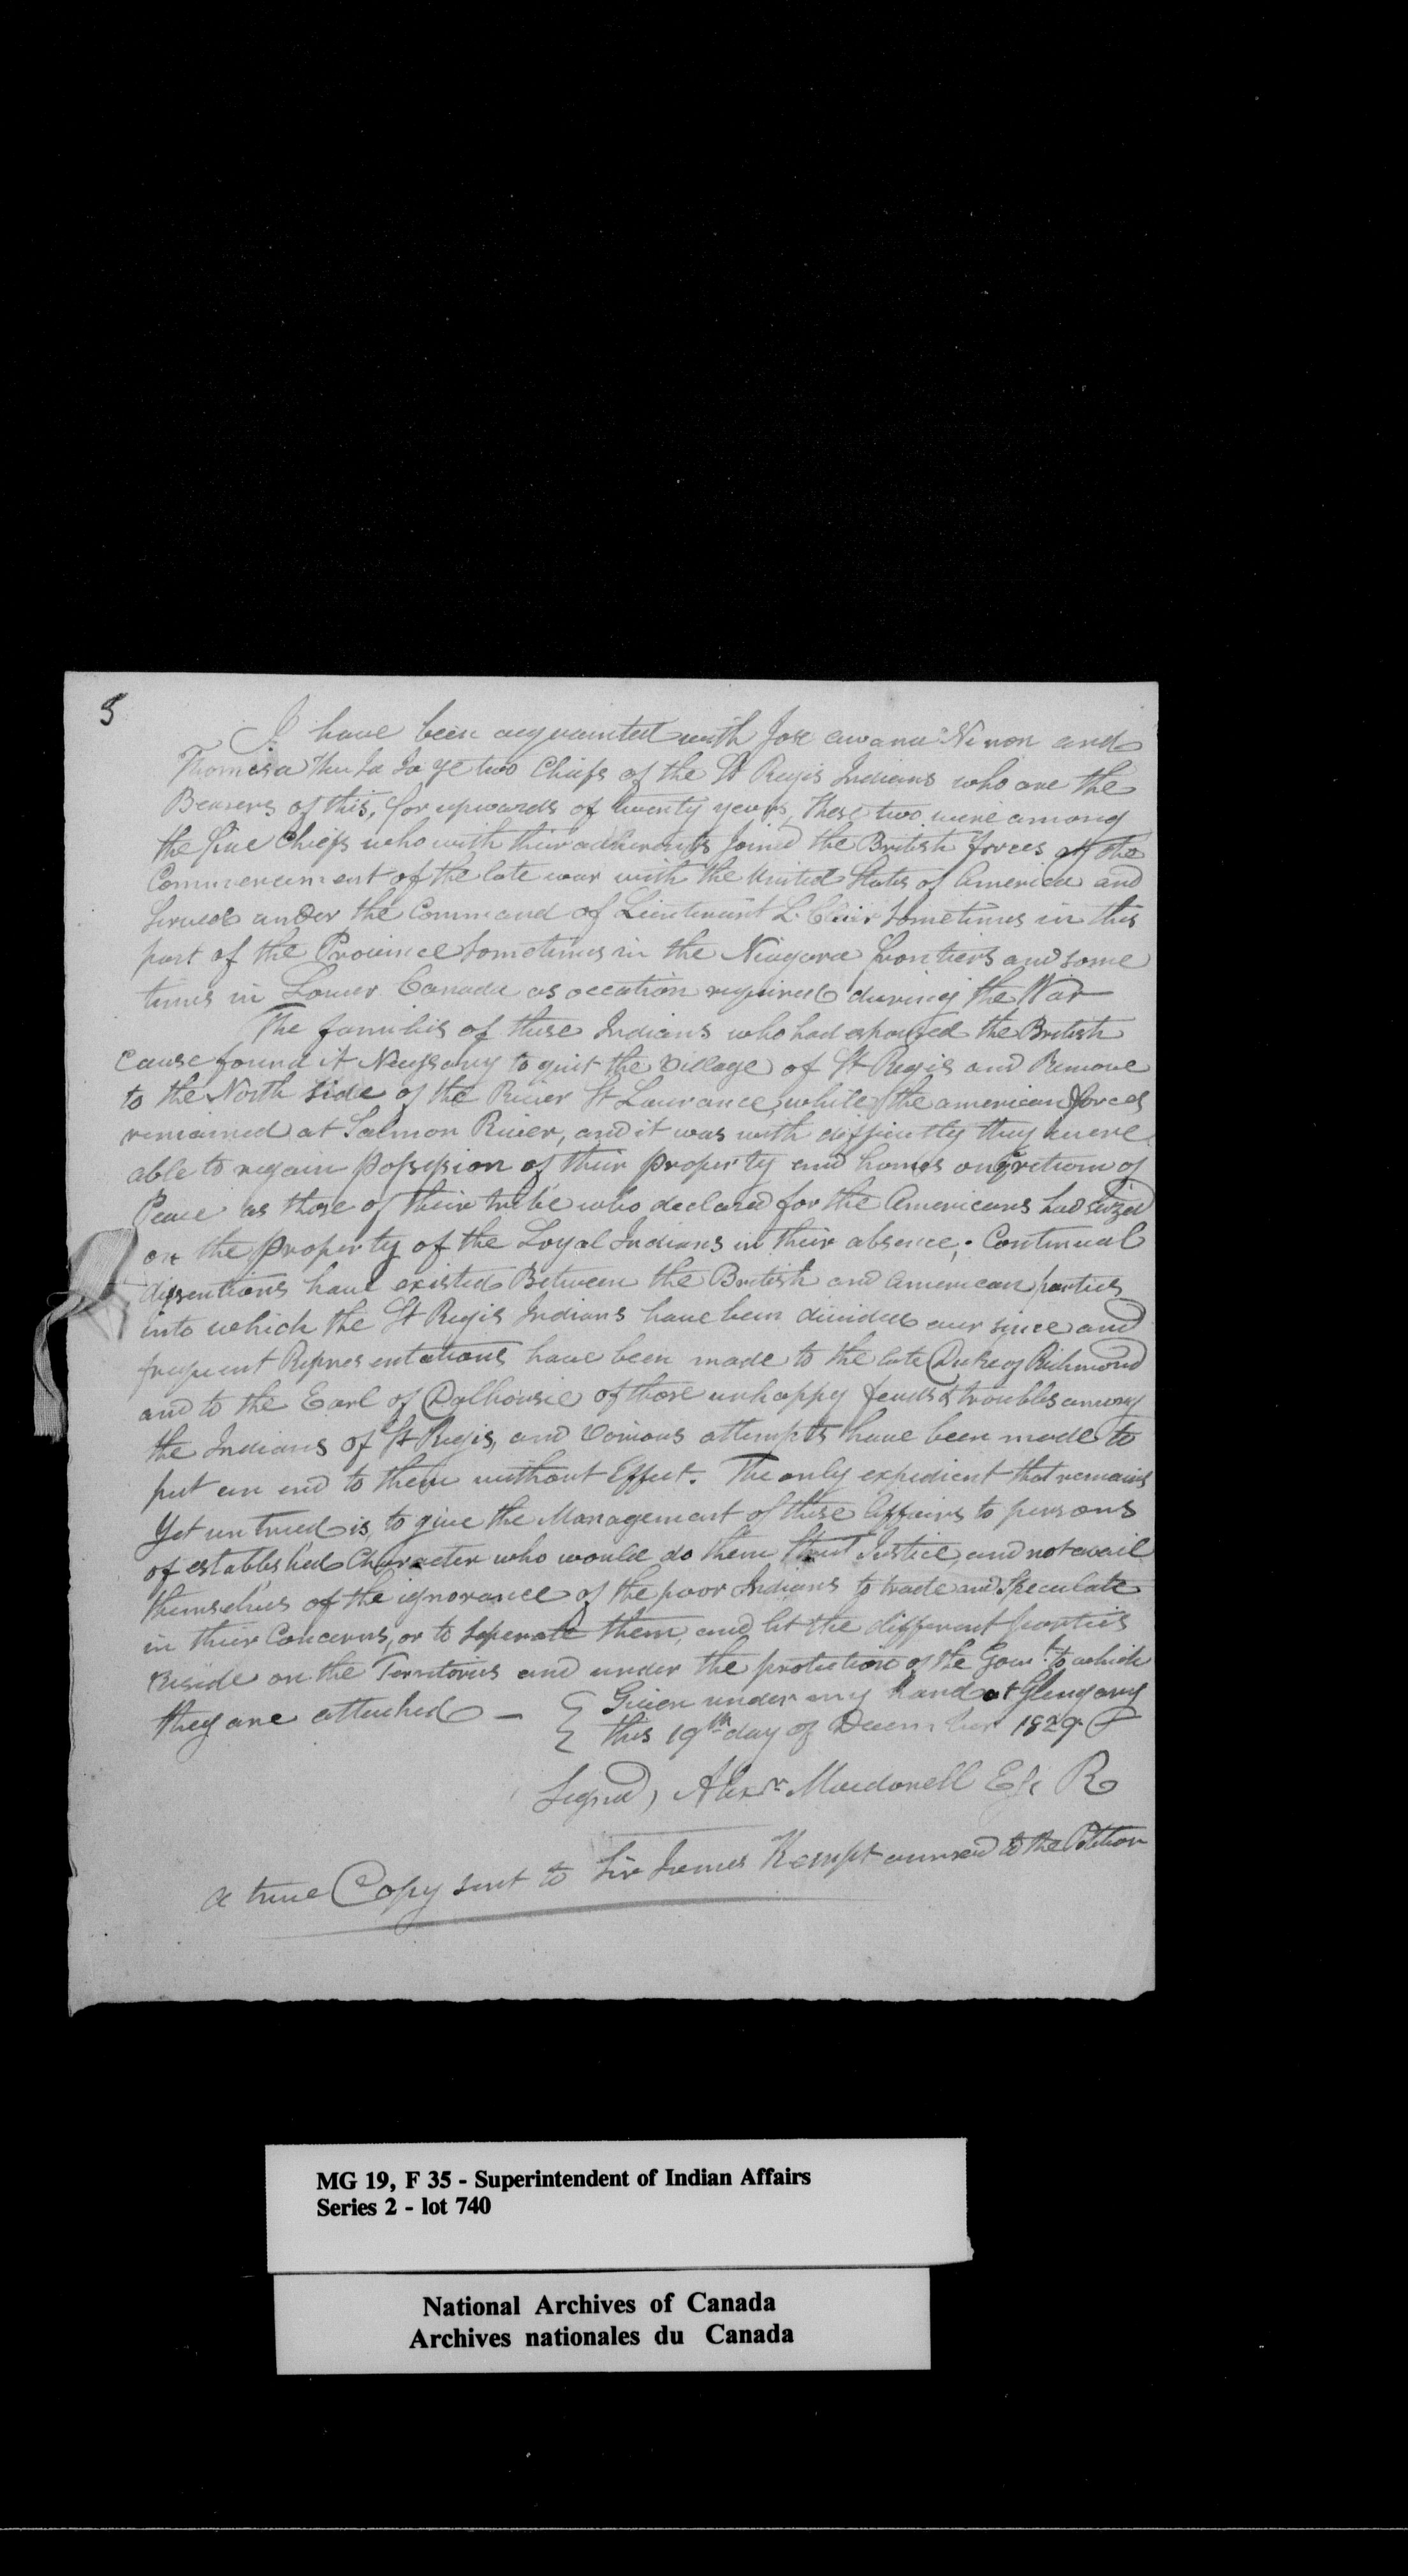 5
I have been acquainted with Jose awana Ninon and
Thomas a The La La ye two Chiefs of the St Regis Indians who are the
Bearers of this, for upwards of twenty years, these two were among
the five Chiefs who with their adherents Joined the British forces at the
Commencement of the late war with the United States of America and
Served under the Command of Lieutenant L. Clair Sometimes in this
part of the Province Sometimes in the Niagara frontiers and some
times in Lower Canada as occation required during the War
The families of these Indians who had espoused the British
Cause found it Necessary to quit the Village of St Regis and Remove
to the North Side of the River St Laurance, while the american forces
remained at Salmon River, and it was with difficulty they were
able to regain possession of their property and homes on return of
Peace as those of their tribe who declared for the Americans had seized
on the property of the Loyal Indians in their absence; Continual
dissentions have existed Between the British and American parties
into which the St Regis Indians have been divided ever since and
frequent Representations have been made to the late Duke of Richmond
and to the Earl of Dalhousie of those unhappy feuds & troubles among
the Indians of St Regis, and Various attempts have been made to
put an end to them without Effect. The only expedient that remains
Yet untried is, to give the Management of these Affairs to persons
of established Character who would do them Strict Justice, and not avail
themselves of the ignorance of the poor Indians to trade and Speculate
in their Concerns, or to Seperate them, and let the different parties
Reside on the Territories and under the protection of the Govt. to which
they are attached —
Given under my hand at Glengarry
this 19th day of December 1829
Signed, Alexr. Macdonell
A true Copy sent to Sir James Kempt annexed to the Petition
MG 19, F 35 - Superintendent of Indian Affairs
Series 2 - lot 740
National Archives of Canada
Archives nationales du Canada